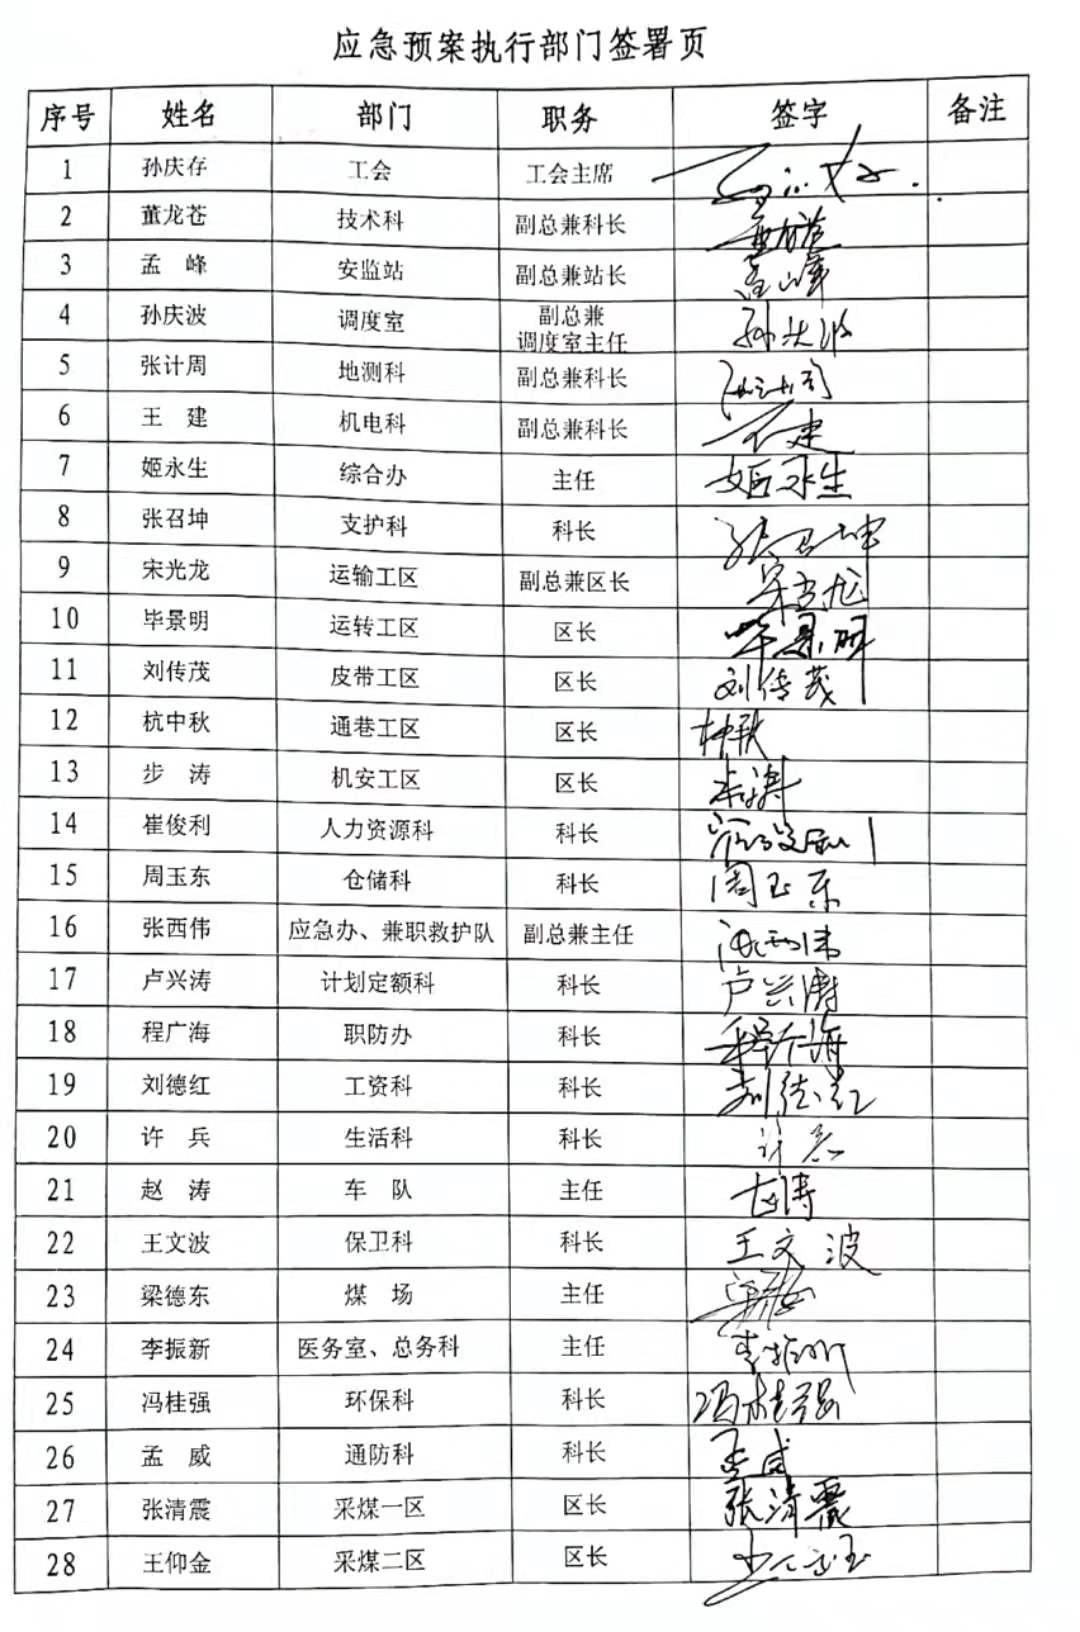 应急预案执行部门签署页
序号 姓名 部门 职务 签字 备注
1 孙庆存 工会 工会主席
2 董龙苍 技术科 副总兼科长
3 孟 峰 安监站 副总兼站长 孟峰
4 孙庆波 调度室 副总兼
调度室主任 孙庆波
5 张计周 地测科 副总兼科长
6 王 建 机电科 副总兼科长 王建
7 姬永生 综合办 主任 姬永生
8 张召坤 支护科 科长 张召坤
9 宋光龙 运输工区 副总兼区长 宋光龙
10 毕景明 运转工区 区长 毕景明
11 刘传茂 皮带工区 区长 刘传茂
12 杭中秋 通巷工区 区长
13 步 涛 机安工区 区长 步涛
14 崔俊利 人力资源科 科长
15 周玉东 仓储科 科长 周玉东
16 张西伟 应急办、兼职救护队 副总兼主任 张西伟
17 卢兴涛 计划定额科 科长 卢兴涛
18 程广海 职防办 科长 程广海
19 刘德红 工资科 科长 刘德红
20 许 兵 生活科 科长 许兵
21 赵 涛 车 队 主任 赵涛
22 王文波 保卫科 科长 王文波
23 梁德东 煤 场 主任
24 李振新 医务室、总务科 主任 李振新
25 冯桂强 环保科 科长 冯桂强
26 孟 威 通防科 科长 孟威
27 张清震 采煤一区 区长 张清震
28 王仰金 采煤二区 区长